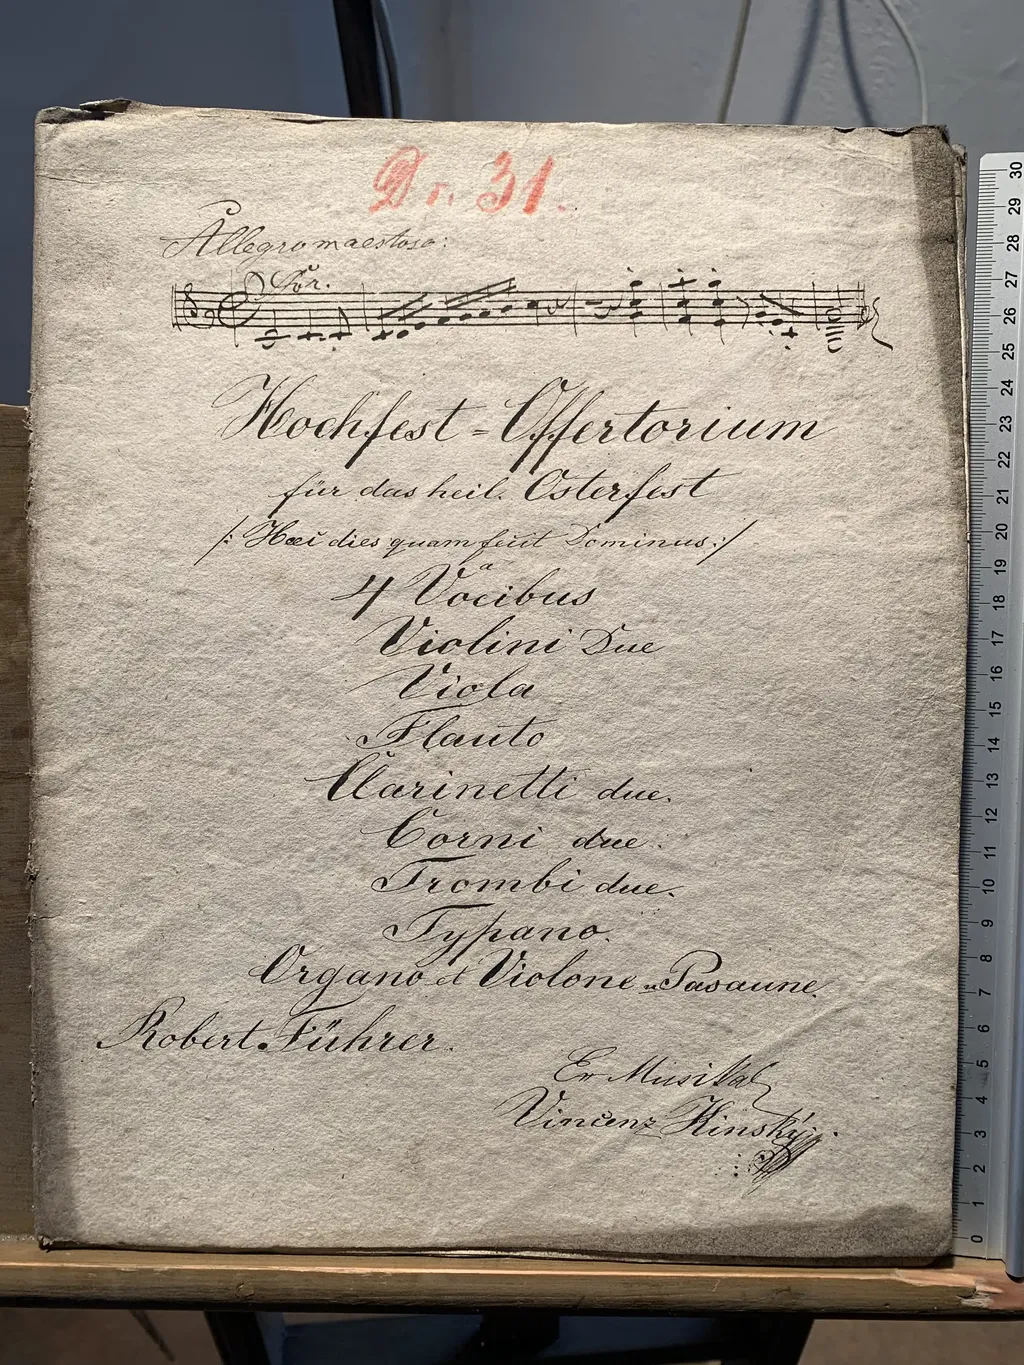 Nr. 31.
Allegro maestoso:
Hochfest = Offertorium
für das heil. Osterfest
/: Haec dies quam fecit Dominus :/
a
4 Vocibus
Violini Due
Viola
Flauto
Clarinetti due.
Corni due.
Trombi due.
Typano.
Organo et Violone u Pasaune.
Robert Führer.
Ex Musikal
Vincenz Hinský
30
29
28
27
26
25
24
23
22
21
20
19
18
17
16
15
14
13
12
11
10
9
8
7
6
5
4
3
2
1
0